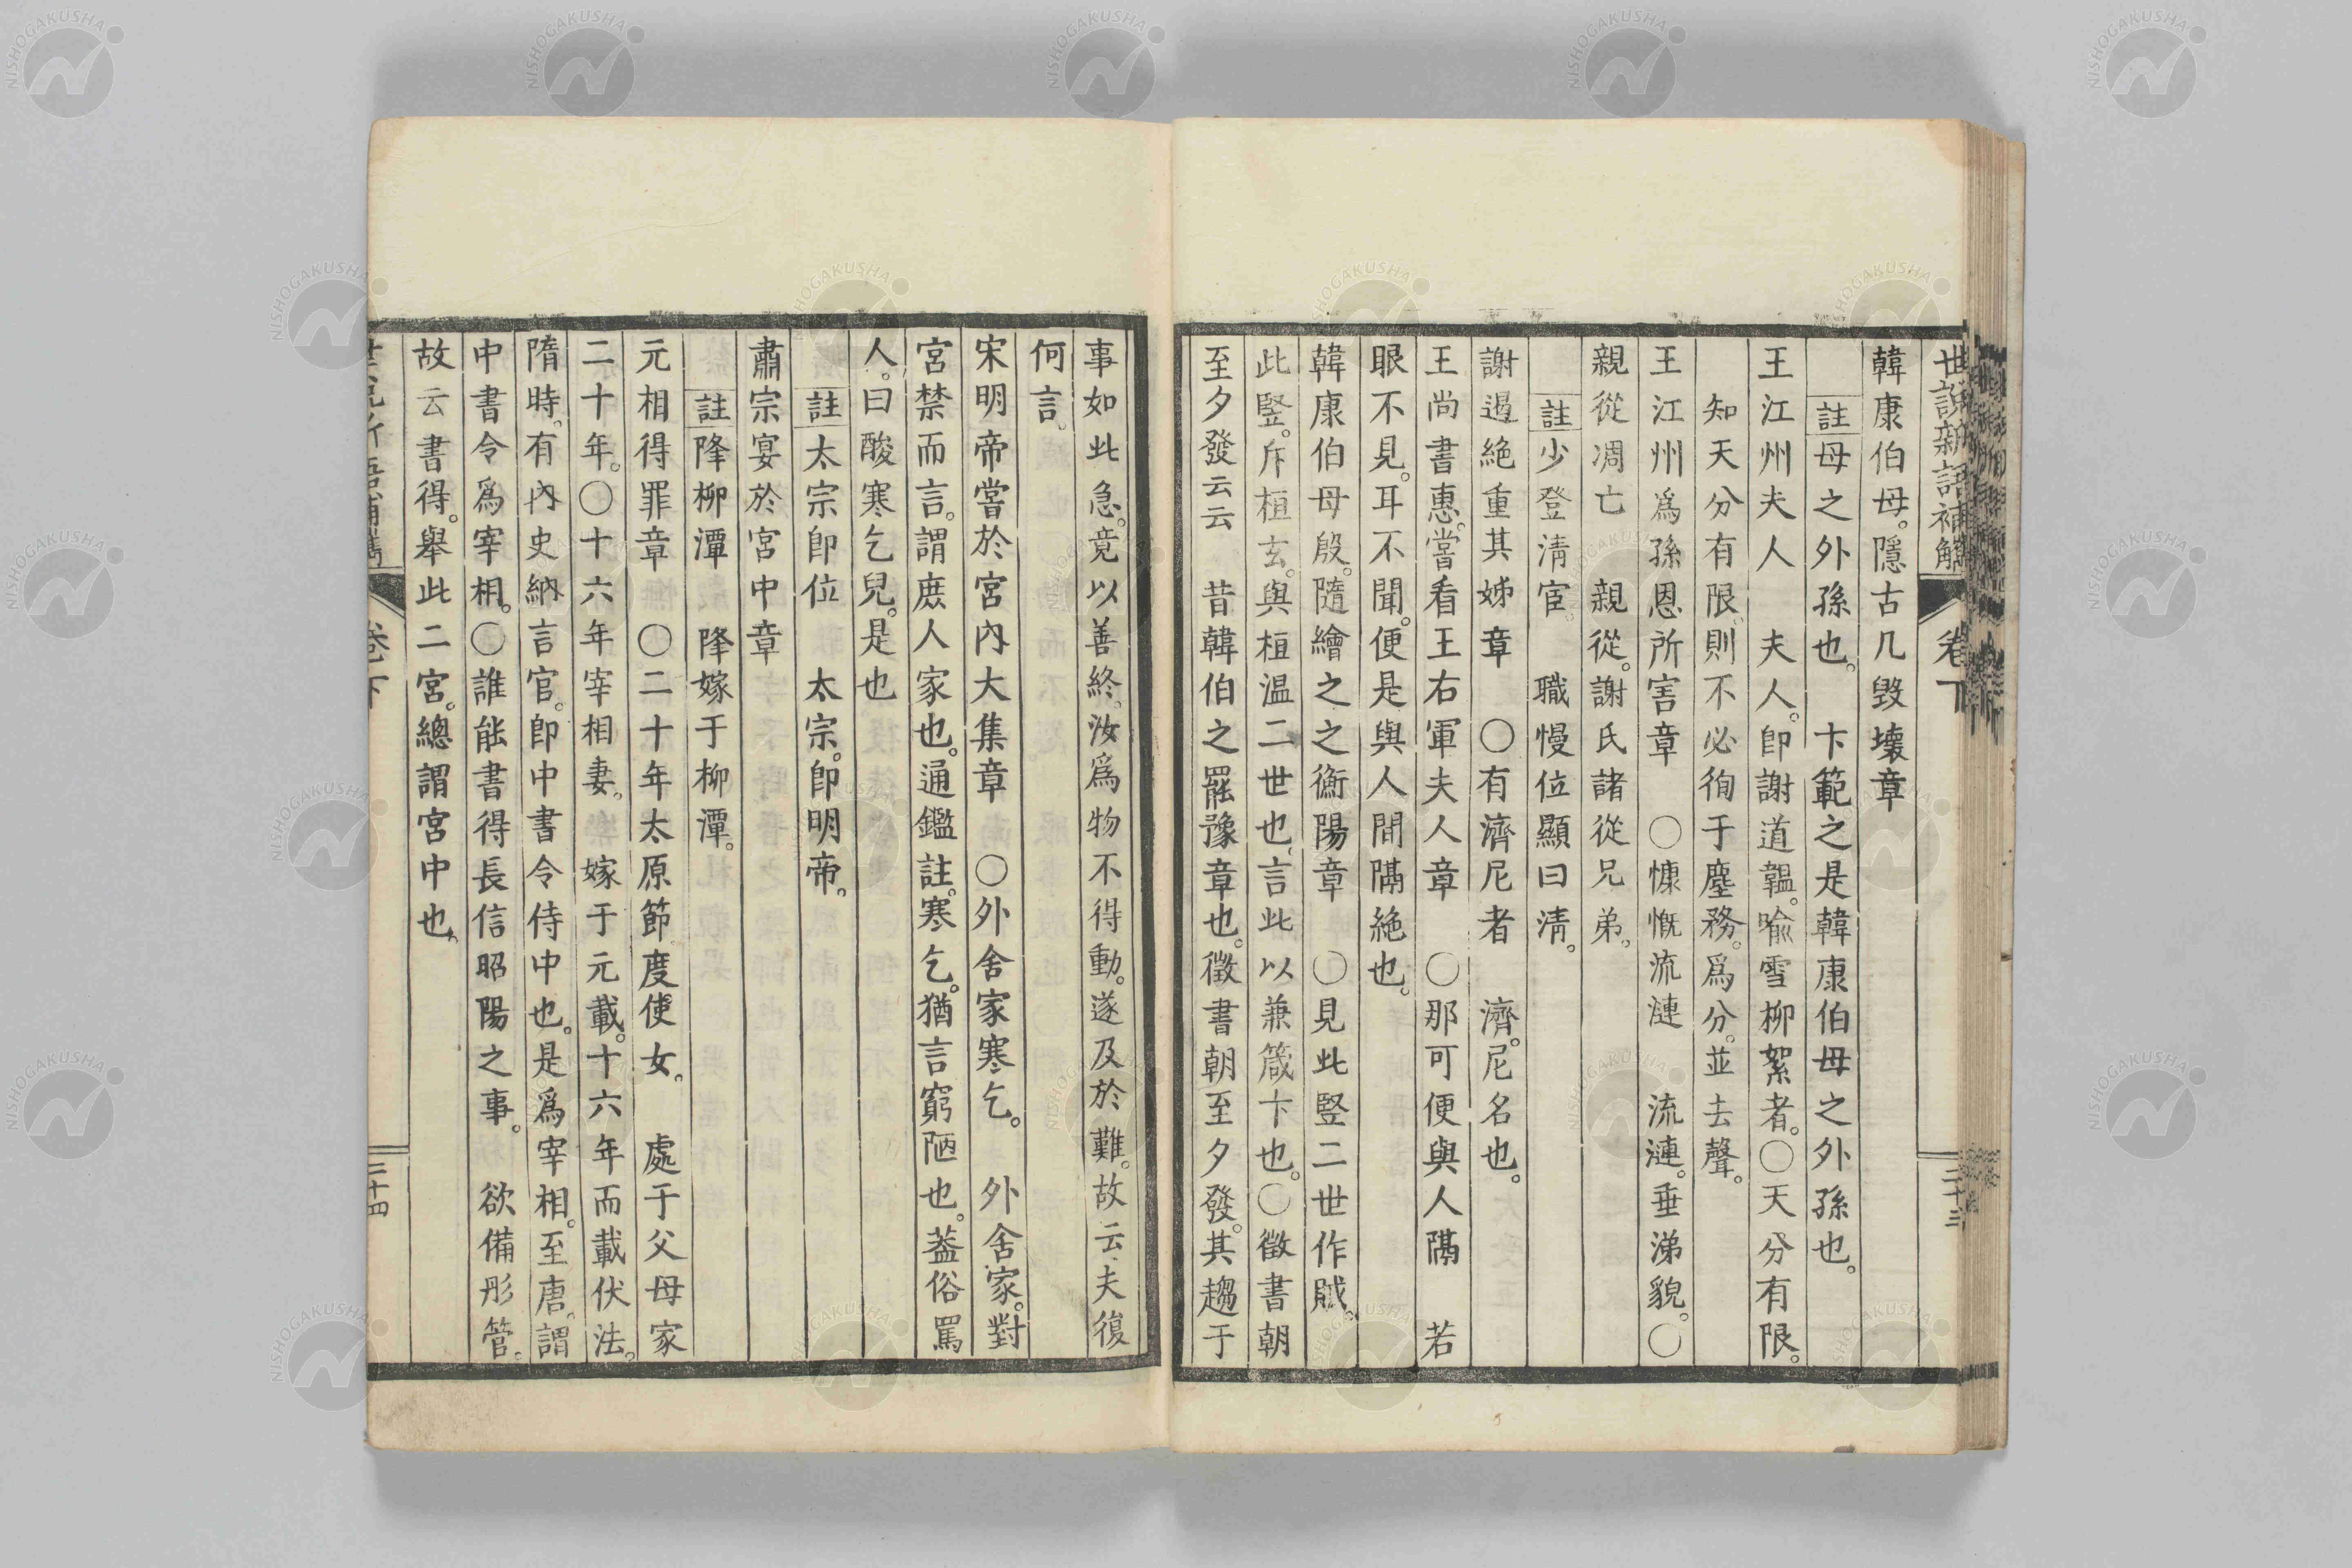 世說新語補觽 卷下
韓康伯母。隱古几毀壞章
註 母之外孫也。 卞範之是韓康伯母之外孫也。
王江州夫人 夫人。卽謝道韞。喩雪柳絮者。〇天分有限。
知天分有限。則不必徇于塵務。爲分。並去聲。
王江州爲孫恩所害章 〇慷慨流漣 流漣。垂涕貌。〇
親從凋亡 親從。謝氏諸從兄弟。
註 少登淸宦。 職慢位顯曰淸。
謝遏絶重其姊章 〇有濟尼者 濟。尼名也。
王尚書惠。嘗看王右軍夫人章 〇那可便與人隔 若
眼不見。耳不聞。便是與人間隔絶也。
韓康伯母殷。隨繪之之衡陽章 〇見此竪二世作賊。
此竪。斥桓玄。與桓温二世也。言此以兼箴卞也。〇徵書朝
至夕發云云 昔韓伯之罷豫章也。徵書朝至夕發。其趨于
事如此急。竟以善終。汝爲物不得動。遂及於難。故云。夫復
何言。
宋明帝嘗於宮內大集章 〇外舍家寒乞。 外舍家。對
宮禁而言。謂庶人家也。通鑑註。寒乞。猶言窮陋也。葢俗罵
人。曰酸寒乞兒。是也
註 太宗卽位 太宗。卽明帝。
肅宗宴於宮中章
註 降柳潭 降嫁于柳潭。
元相得罪章 〇二十年太原節度使女。 處于父母家
二十年。〇十六年宰相妻。 嫁于元載。十六年而載伏法。
隋時。有內史納言官。卽中書令侍中也。是爲宰相。至唐。謂
中書令爲宰相。〇誰能書得長信昭陽之事。 欲備彤管。
故云書得。舉此二宮。總謂宮中也。
卷下
三十四
NISHOGAKUSHA